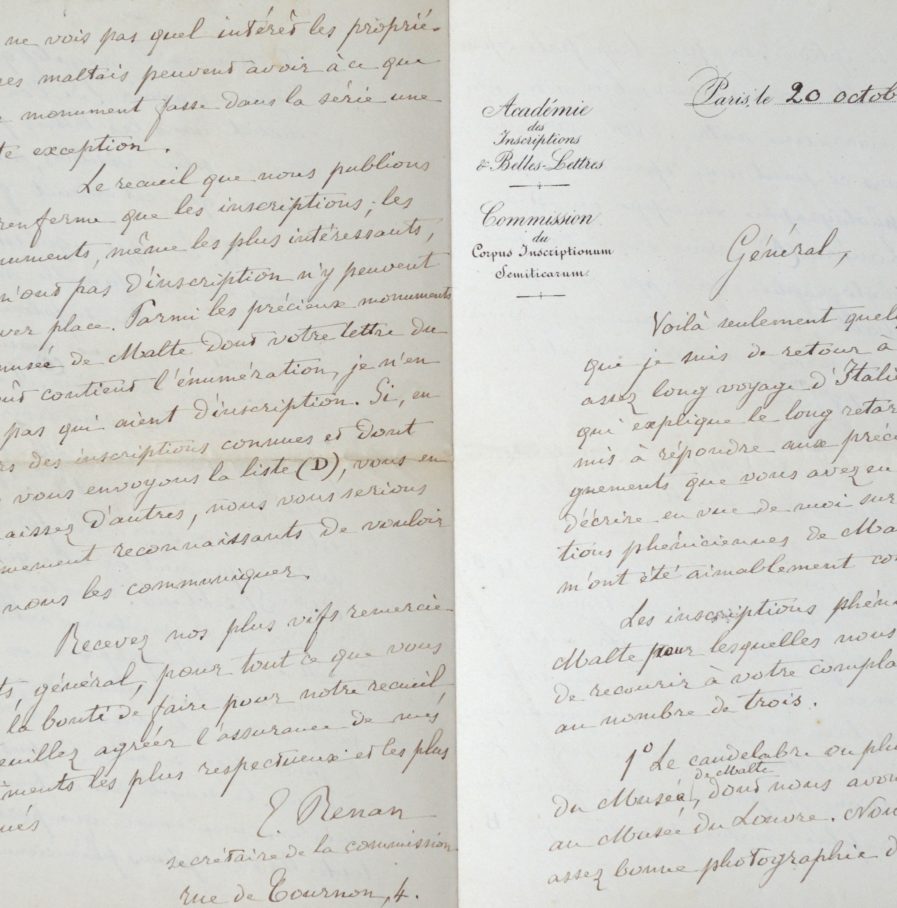 ne vois pas quel intérêt les proprié-
res maltais peuvent avoir à ce que
monument fasse dans la série une
te exception.
Le recueil que nous publions
renferme que les inscriptions; les
numents, même les plus intéressants,
n'ont pas d'inscription n'y peuvent
ver place. Parmi les précieux monuments
musée de Malte dont votre lettre du
contient l'énumération, je n'en
pas qui aient d'inscription. Si, en
s des inscriptions connues et dont
vous envoyons la liste (D), vous en
aissez d'autres, nous vous serions
mement reconnaissants de vouloir
nous les communiquer.
Recevez nos plus vifs remercie-
ts, général, pour tout ce que vous
la bonté de faire pour notre recueil
euillez agréer l'assurance de mes
ments les plus respectueux et les plus
ués
E. Renan
secrétaire de la commission
rue de Tournon, 4.
Paris, le 20 octob
Académie
des
Inscriptions
& Belles-Lettres
Commission
du
Corpus Inscriptionum
Semiticarum
Général,
Voilà seulement quelq
que je suis de retour à
assez long voyage d'Itali
qui explique le long retar
mis à répondre aux préci
gnements que vous avez eu
décrire en vue de moi sur
tions phéniciennes de Ma
m'ont été aimablement co
Les inscriptions phén
Malte pour lesquelles nous
de recourir à votre compla
au nombre de trois.
1º Le candelabre ou pl
du Musée de Malte, dont nous avon
au Musée du Louvre. Nou
assez bonne photographie d